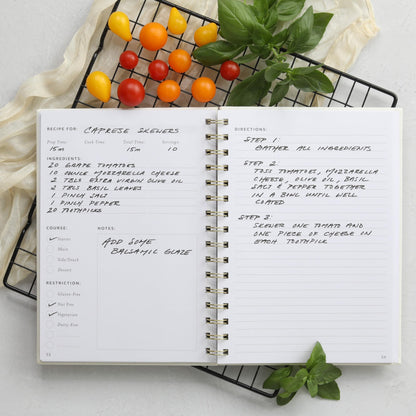 RECIPE FOR: CAPRESE SKEWERS
Prep Time: Cook Time: Total Time: Servings:
15m 15m 10
INGREDIENTS:
20 GRAPE TOMATOES
10 OUNCE MOZZARELLA CHEESE
2 TBLS EXTRA VIRGIN OLIVE OIL
2 TBLS BASIL LEAVES
1 PINCH SALT
1 PINCH PEPPER
20 TOOTHPICKS
COURSE:
Starter
Main
Side/Snack
Dessert
RESTRICTION:
Gluten Free
Nut Free
Vegetarian
Dairy Free
NOTES:
ADD SOME
BALSAMIC GLAZE
DIRECTIONS:
STEP 1
GATHER ALL INGREDIENTS
STEP 2
TOSS TOMATOES, MOZZARELLA
CHEESE, OLIVE OIL, BASIL
SALT & PEPPER TOGETHER
IN A BOWL UNTIL WELL
COATED
STEP 3
SKEWER ONE TOMATO AND
ONE PIECE OF CHEESE ON
EACH TOOTHPICK